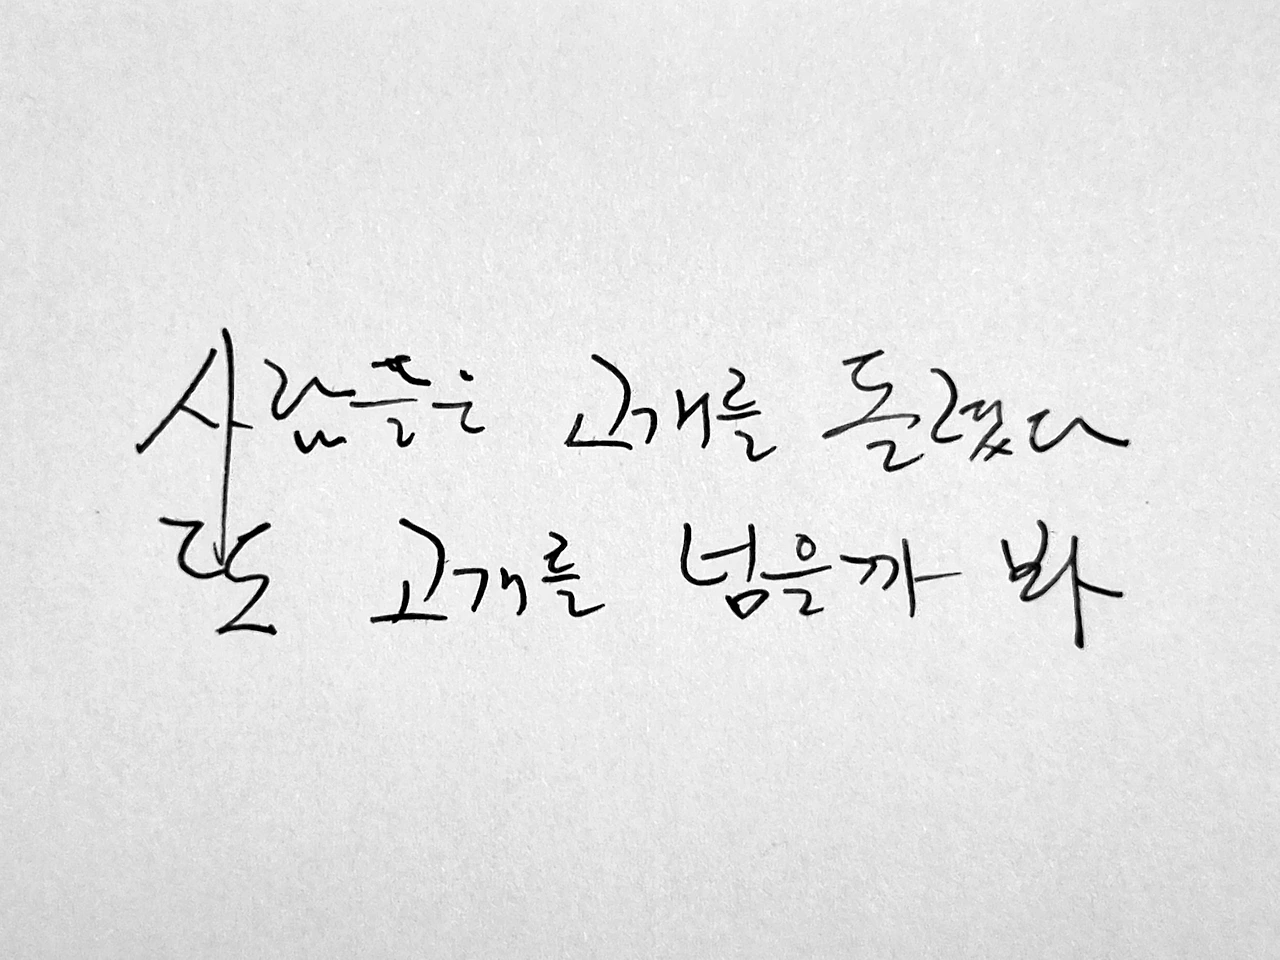 사람들은 고개를 돌렸다
또 고개를 넘을까 봐